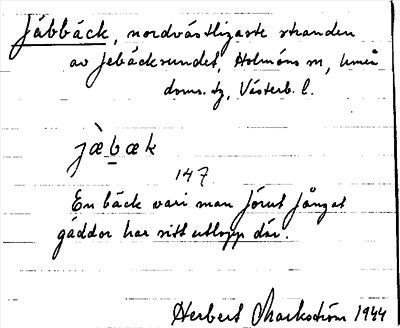 Jäbbäck, nordvästligaste stranden
av Jebäcksundet, Holmöns sn, Umeå
doms. tg, Västerb. l.
jàbæk
147
En bäck vari man förut fångat
gäddor har sitt utlopp där.
Herbert Markström 1944